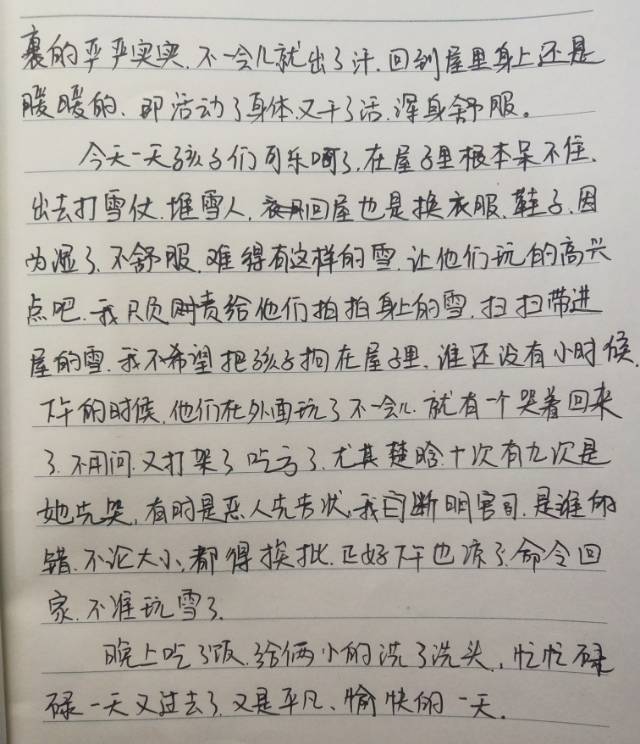 裹的严严实实.不一会儿就出了汗.回到屋里身上还是
暖暖的、即活动了身体.又干了活.浑身舒服。
今天一天孩子们可乐呵了.在屋子里根本呆不住.
出去打雪仗.堆雪人,回屋也是换衣服.鞋子.因
为湿了.不舒服.难得有这样的雪.让他们玩的高兴
点吧.我只负责给他们拍拍身上的雪.扫扫带进
屋的雪.我不希望把孩子拘在屋子里.谁还没有小时候.
下午的时候.他们在外面玩了不一会儿.就有一个哭着回来
了.不用问.又打架了吃亏了.尤其楚晗.十次有九次是
她先哭,有时是恶人先告状.我断明官司.是谁的
错.不论大小,都得挨批.正好下午也凉了.命令回
家.不准玩雪了.
晚上吃了饭.给俩小的洗了洗头,忙忙碌
碌一天又过去了.又是平凡、愉快的一天.